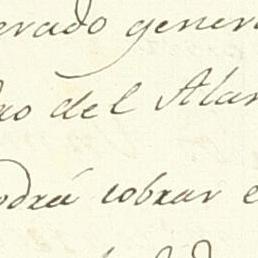 erado gener
do del Alam
odrá cobrar e